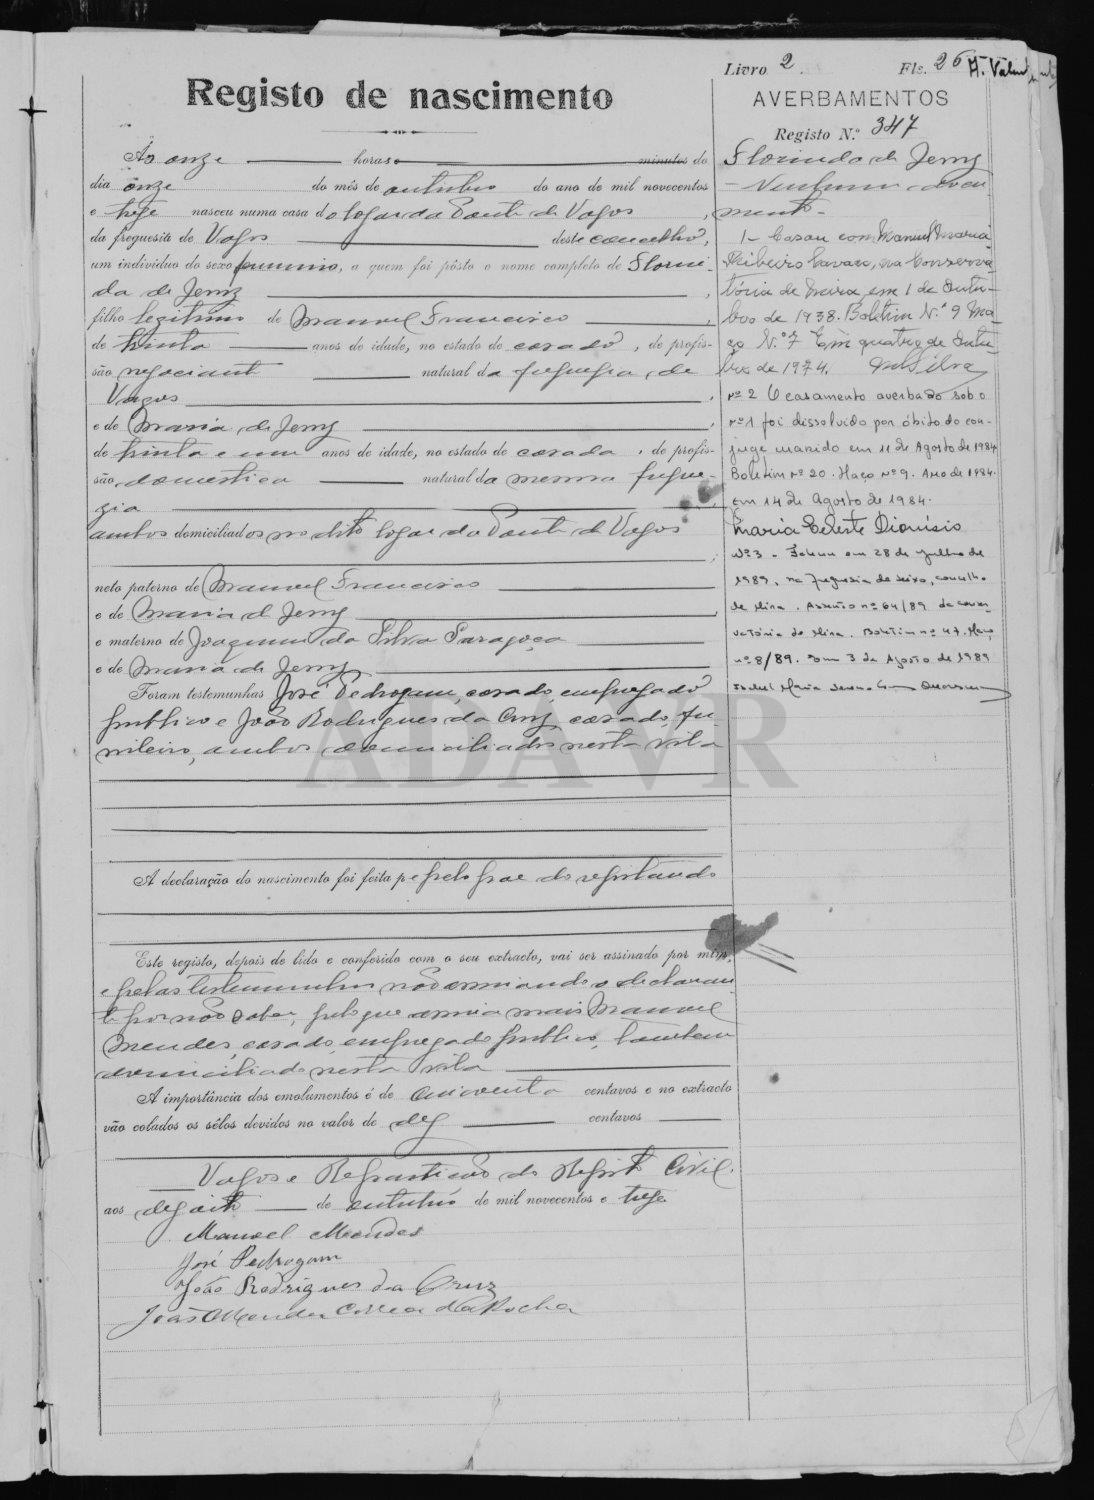 Livro 2. Fls. 26
Registo de nascimento
AVERBAMENTOS
Registo N.º 347
Ás onze horas e minutos do
dia onze do mês de outubro do ano de mil novecentos
e treze nasceu numa casa do logar da Ponte de Vagos,
da freguesia de Vagos deste concelho,
um individuo do sexo femenino, a quem foi pôsto o nome completo de Florin-
da de Jesus,
filho legitimo de Manuel Francisco,
de trinta anos de idade, no estado de casado, de profis-
são negociante natural da freguesia de
Vagos,
e de Maria de Jesus,
de trinta e um anos de idade, no estado de casada, de profis-
são domestica natural da mesma fregue-
zia,
ambos domiciliados no dito logar da Ponte de Vagos
neto paterno de Manuel Francisco
e de Maria de Jesus,
e materno de Joaquim da Silva Saragoça
e de Maria de Jesus
Foram testemunhas José Pedrogam, casado, empregado
publico e João Rodrigues da Cruz, casado, fu-
nileiro, ambos domiciliados nesta vila
ADAVR
A declaração do nascimento foi feita pelo pae do registando
Este registo, depois de lido e conferido com o seu extracto, vai ser assinado por mim,
e pelas testemunhas não assinando o declaran-
te por não saber, pelo que assina mais Manuel
Mendes, casado, empregado publico, tambem
domiciliado nesta vila
A importância dos emolumentos é de cincoenta centavos e no extracto
vão colados os sêlos devidos no valor de dez centavos
Vagos e Repartição do Registo Civil.
aos dezoito de outubro de mil novecentos e treze
Manoel Mendes
José Pedrogam
João Rodrigues da Cruz
João Mendes Correia da Rocha
Florinda de Jesus
1 - Casou com Manuel Maria
Ribeiro , na Conserva-
tória de Mira, em 1 de Outu-
bro de 1938. Boletim N.º 9 Ma-
ço N.º 7 Em quatro de Outu-
bro de 1974. Silva
Nº 2 O casamento averbado sob o
nº 1 foi dissolvido por óbito do con-
juge marido em 11 de Agosto de 1984
Boletim nº 20. Maço nº 9. Ano de 1984.
em 14 de Agosto de 1984.
Maria Celeste Dionísio
Nº 3 - Faleceu em 28 de Julho de
1989, na freguesia de Seixo, concelho
de Mira. Assento nº 64/89 da Conser-
vatória de Mira. Boletim nº 47. Maço
nº 8/89. Em 3 de Agosto de 1989
Isabel Maria